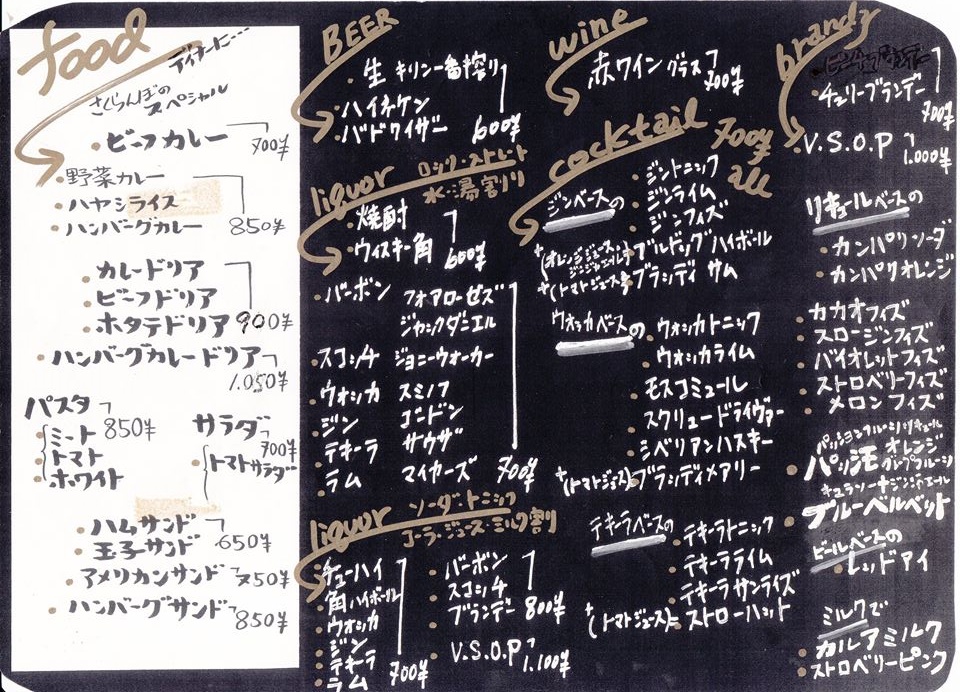 food
ディナーに…
さくらんぼの
スペシャル
・ビーフカレー 700¥
・野菜カレー
・ハヤシライス
・ハンバーグカレー 850¥
・カレードリア
・ビーフドリア
・ホタテドリア 900¥
・ハンバーグカレードリア
1.050¥
パスタ
850¥
・ミート
・トマト
・ホワイト
サラダ
700¥
・トマトサラダ
・ハムサンド
・玉子サンド 650¥
・アメリカンサンド 750¥
・ハンバーグサンド 850¥
BEER
・生 キリン一番搾り
・ハイネケン
・バドワイザー 600¥
liquor ロック・ストレート
水・湯割り
・焼酎
・ウィスキー角 600¥
・バーボン フォアローゼズ
ジャックダニエル
スコッチ ジョニーウォーカー
ウォッカ スミノフ
ジン ゴードン
テキーラ サウザ
ラム マイヤーズ 700¥
liquor ソーダ・トニック
コーラ・ジュース・ミルク割
・チューハイ
・角ハイボール
・ウォッカ
・ジン
・テキーラ
・ラム 700¥
・バーボン
・スコッチ
・ブランデー 800¥
・V.S.O.P 1.100¥
wine
・赤ワイン グラス 700¥
cocktail 700¥
all
ジンベースの
・ジントニック
・ジンライム
・ジンフィズ
・ブルドッグハイボール
+(トマトジュース)・ブラッディ サム
ウォッカベースの
・ウォッカトニック
・ウォッカライム
・モスコミュール
・スクリュードライヴァー
・シベリアンハスキー
+(トマトジュース)・ブラッディメアリー
テキーラベースの
・テキーラトニック
・テキーラライム
・テキーラサンライズ
+(トマトジュース)・ストローハット
brandy
・チェリーブランデー
700¥
・V.S.O.P 1.000¥
リキュールベースの
・カンパリソーダ
・カンパリオレンジ
・カカオフィズ
・スロージンフィズ
・バイオレットフィズ
・ストロベリーフィズ
・メロンフィズ
ブルーベルベット
ビールベースの
・レッドアイ
ミルクで
・カルアミルク
・ストロベリーピンク